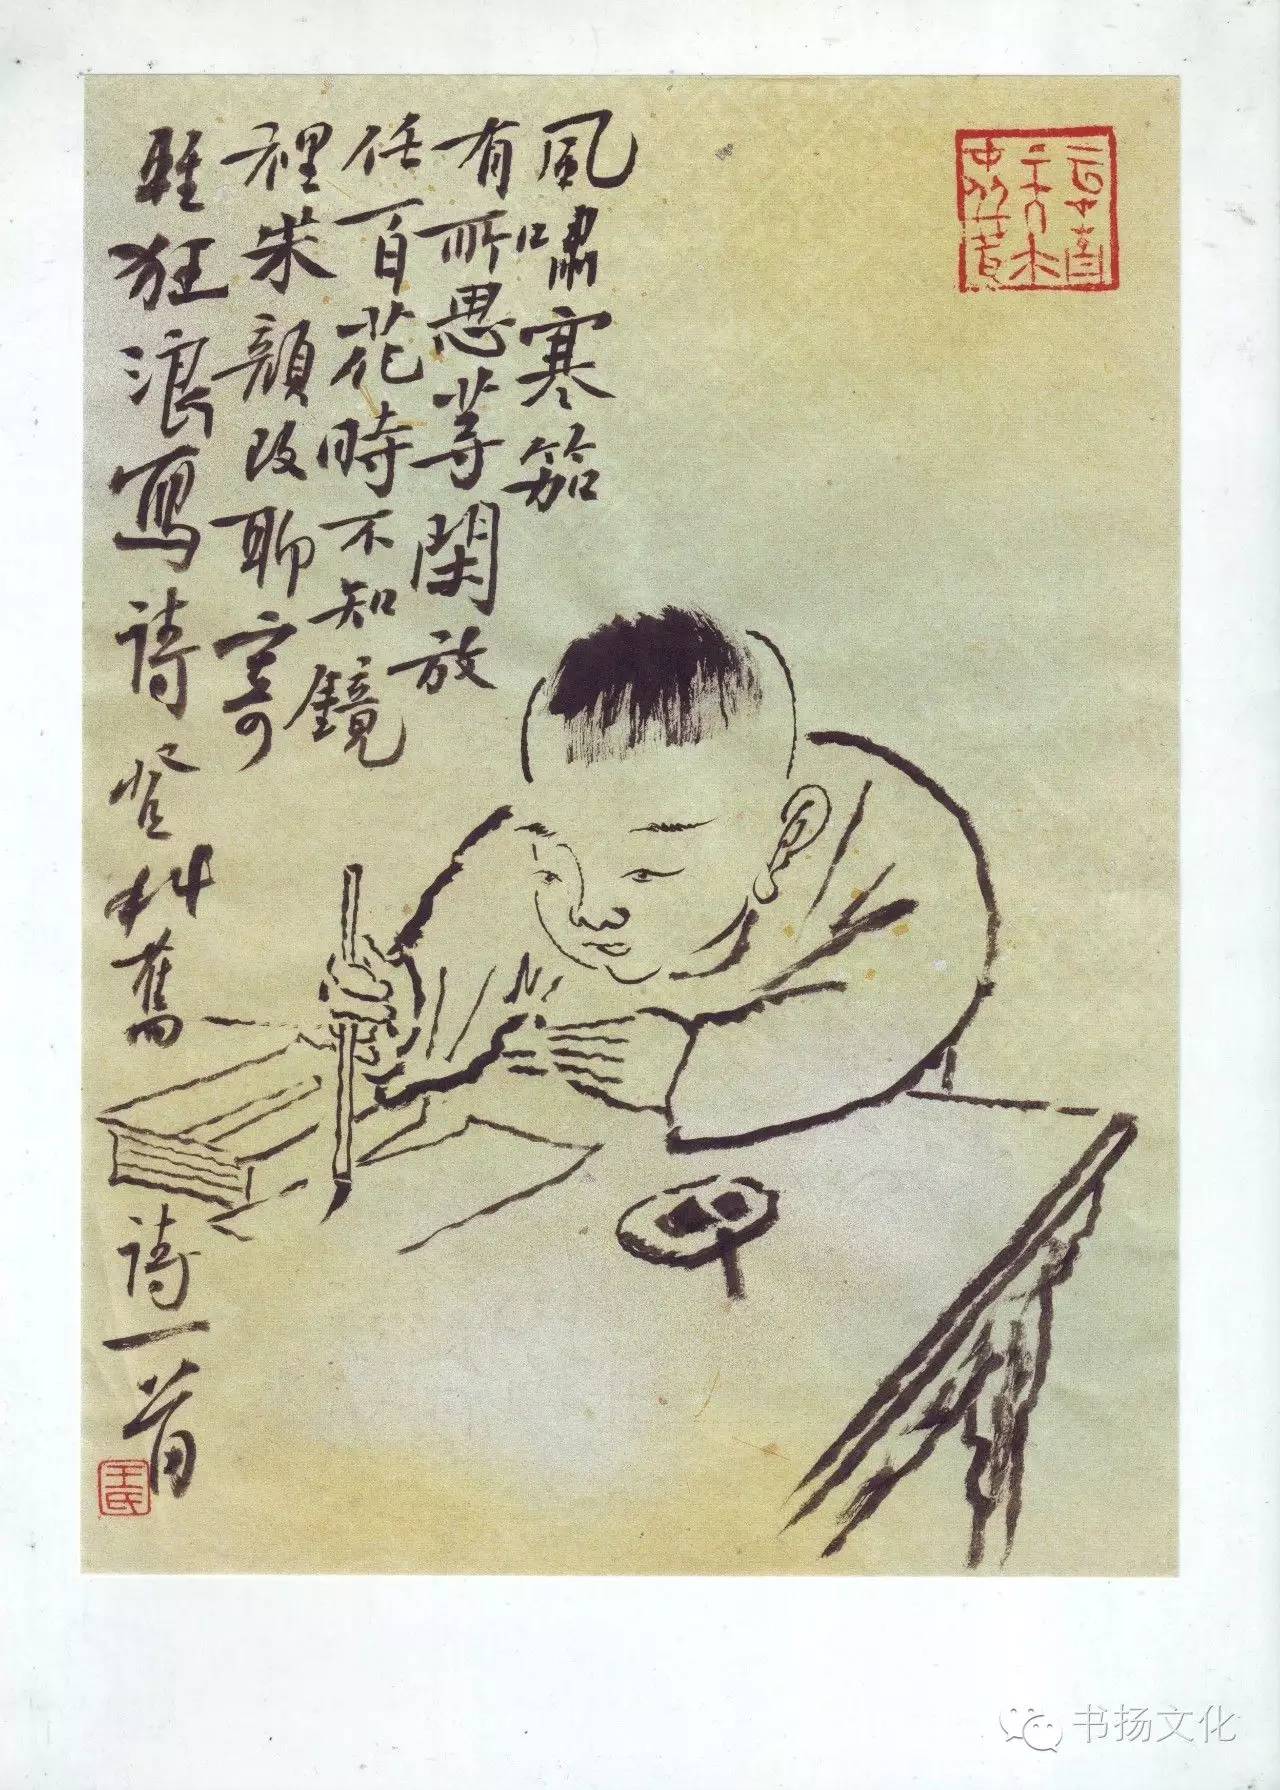 風嘯寒笳
有所思等閑放
任百花時不知鏡
裡朱顏改聊寄
狂浪寫詩登科舊
詩一首
王氏
书扬文化